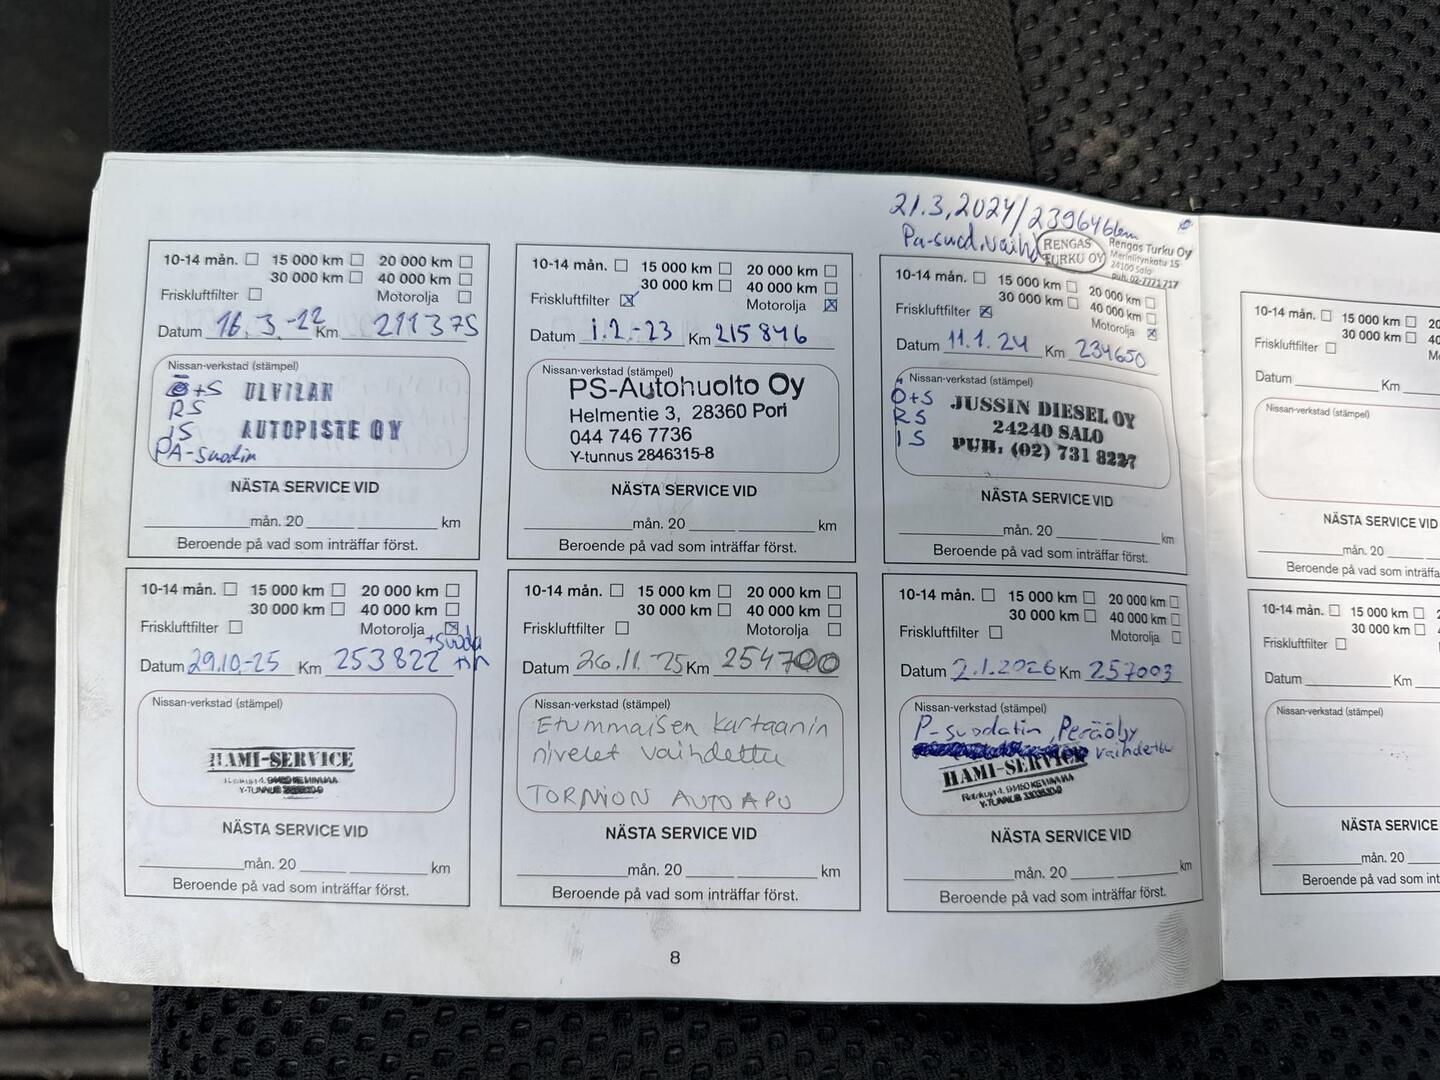 21.3.2024/239646km
Pa-suod.vaihd
RENGAS TURKU OY
Rengas Turku Oy
Meriniitynkatu 15
24100 Salo
puh. 02-7771717
10-14 mån. 15 000 km 20 000 km
30 000 km 40 000 km
Friskluftfilter Motorolja
Datum 16.3.-22 Km 211375
Nissan-verkstad (stämpel)
Ö+S
RS
IS
PA-suodin
ULVILAN
AUTOPISTE OY
NÄSTA SERVICE VID
mån. 20 km
Beroende på vad som inträffar först.
10-14 mån. 15 000 km 20 000 km
30 000 km 40 000 km
Friskluftfilter Motorolja
Datum 1.2.-23 Km 215846
Nissan-verkstad (stämpel)
PS-Autohuolto Oy
Helmentie 3, 28360 Pori
044 746 7736
Y-tunnus 2846315-8
NÄSTA SERVICE VID
mån. 20 km
Beroende på vad som inträffar först.
10-14 mån. 15 000 km 20 000 km
30 000 km 40 000 km
Friskluftfilter Motorolja
Datum 11.1.24 Km 234650
Nissan-verkstad (stämpel)
Ö+S
RS
IS
JUSSIN DIESEL OY
24240 SALO
PUH. (02) 731 8227
NÄSTA SERVICE VID
mån. 20 km
Beroende på vad som inträffar först.
10-14 mån. 15 000 km 20 000 km
30 000 km 40 000 km
Friskluftfilter Motorolja
+suodatin
Datum 29.10-25 Km 253822
Nissan-verkstad (stämpel)
HAMI-SERVICE
Y-TUNNUS
NÄSTA SERVICE VID
mån. 20 km
Beroende på vad som inträffar först.
10-14 mån. 15 000 km 20 000 km
30 000 km 40 000 km
Friskluftfilter Motorolja
Datum 26.11.25 Km 254700
Nissan-verkstad (stämpel)
Etummaisen kartaanin
nivelet vaihdettu
TORNION AUTOAPU
NÄSTA SERVICE VID
mån. 20 km
Beroende på vad som inträffar först.
10-14 mån. 15 000 km 20 000 km
30 000 km 40 000 km
Friskluftfilter Motorolja
Datum 2.1.2026 Km 257003
Nissan-verkstad (stämpel)
P-suodatin, Peräöljy
vaihdettu
HAMI-SERVICE
Y-TUNNUS
NÄSTA SERVICE VID
mån. 20 km
Beroende på vad som inträffar först.
8
10-14 mån. 15 000 km 20
30 000 km 40
Friskluftfilter
Datum Km
Nissan-verkstad (stämpel)
NÄSTA SERVICE VID
mån. 20
Beroende på vad som inträffar
10-14 mån. 15 000 km
30 000 km
Friskluftfilter
Datum Km
Nissan-verkstad (stämpel)
NÄSTA SERVICE
mån. 20
Beroende på vad som int